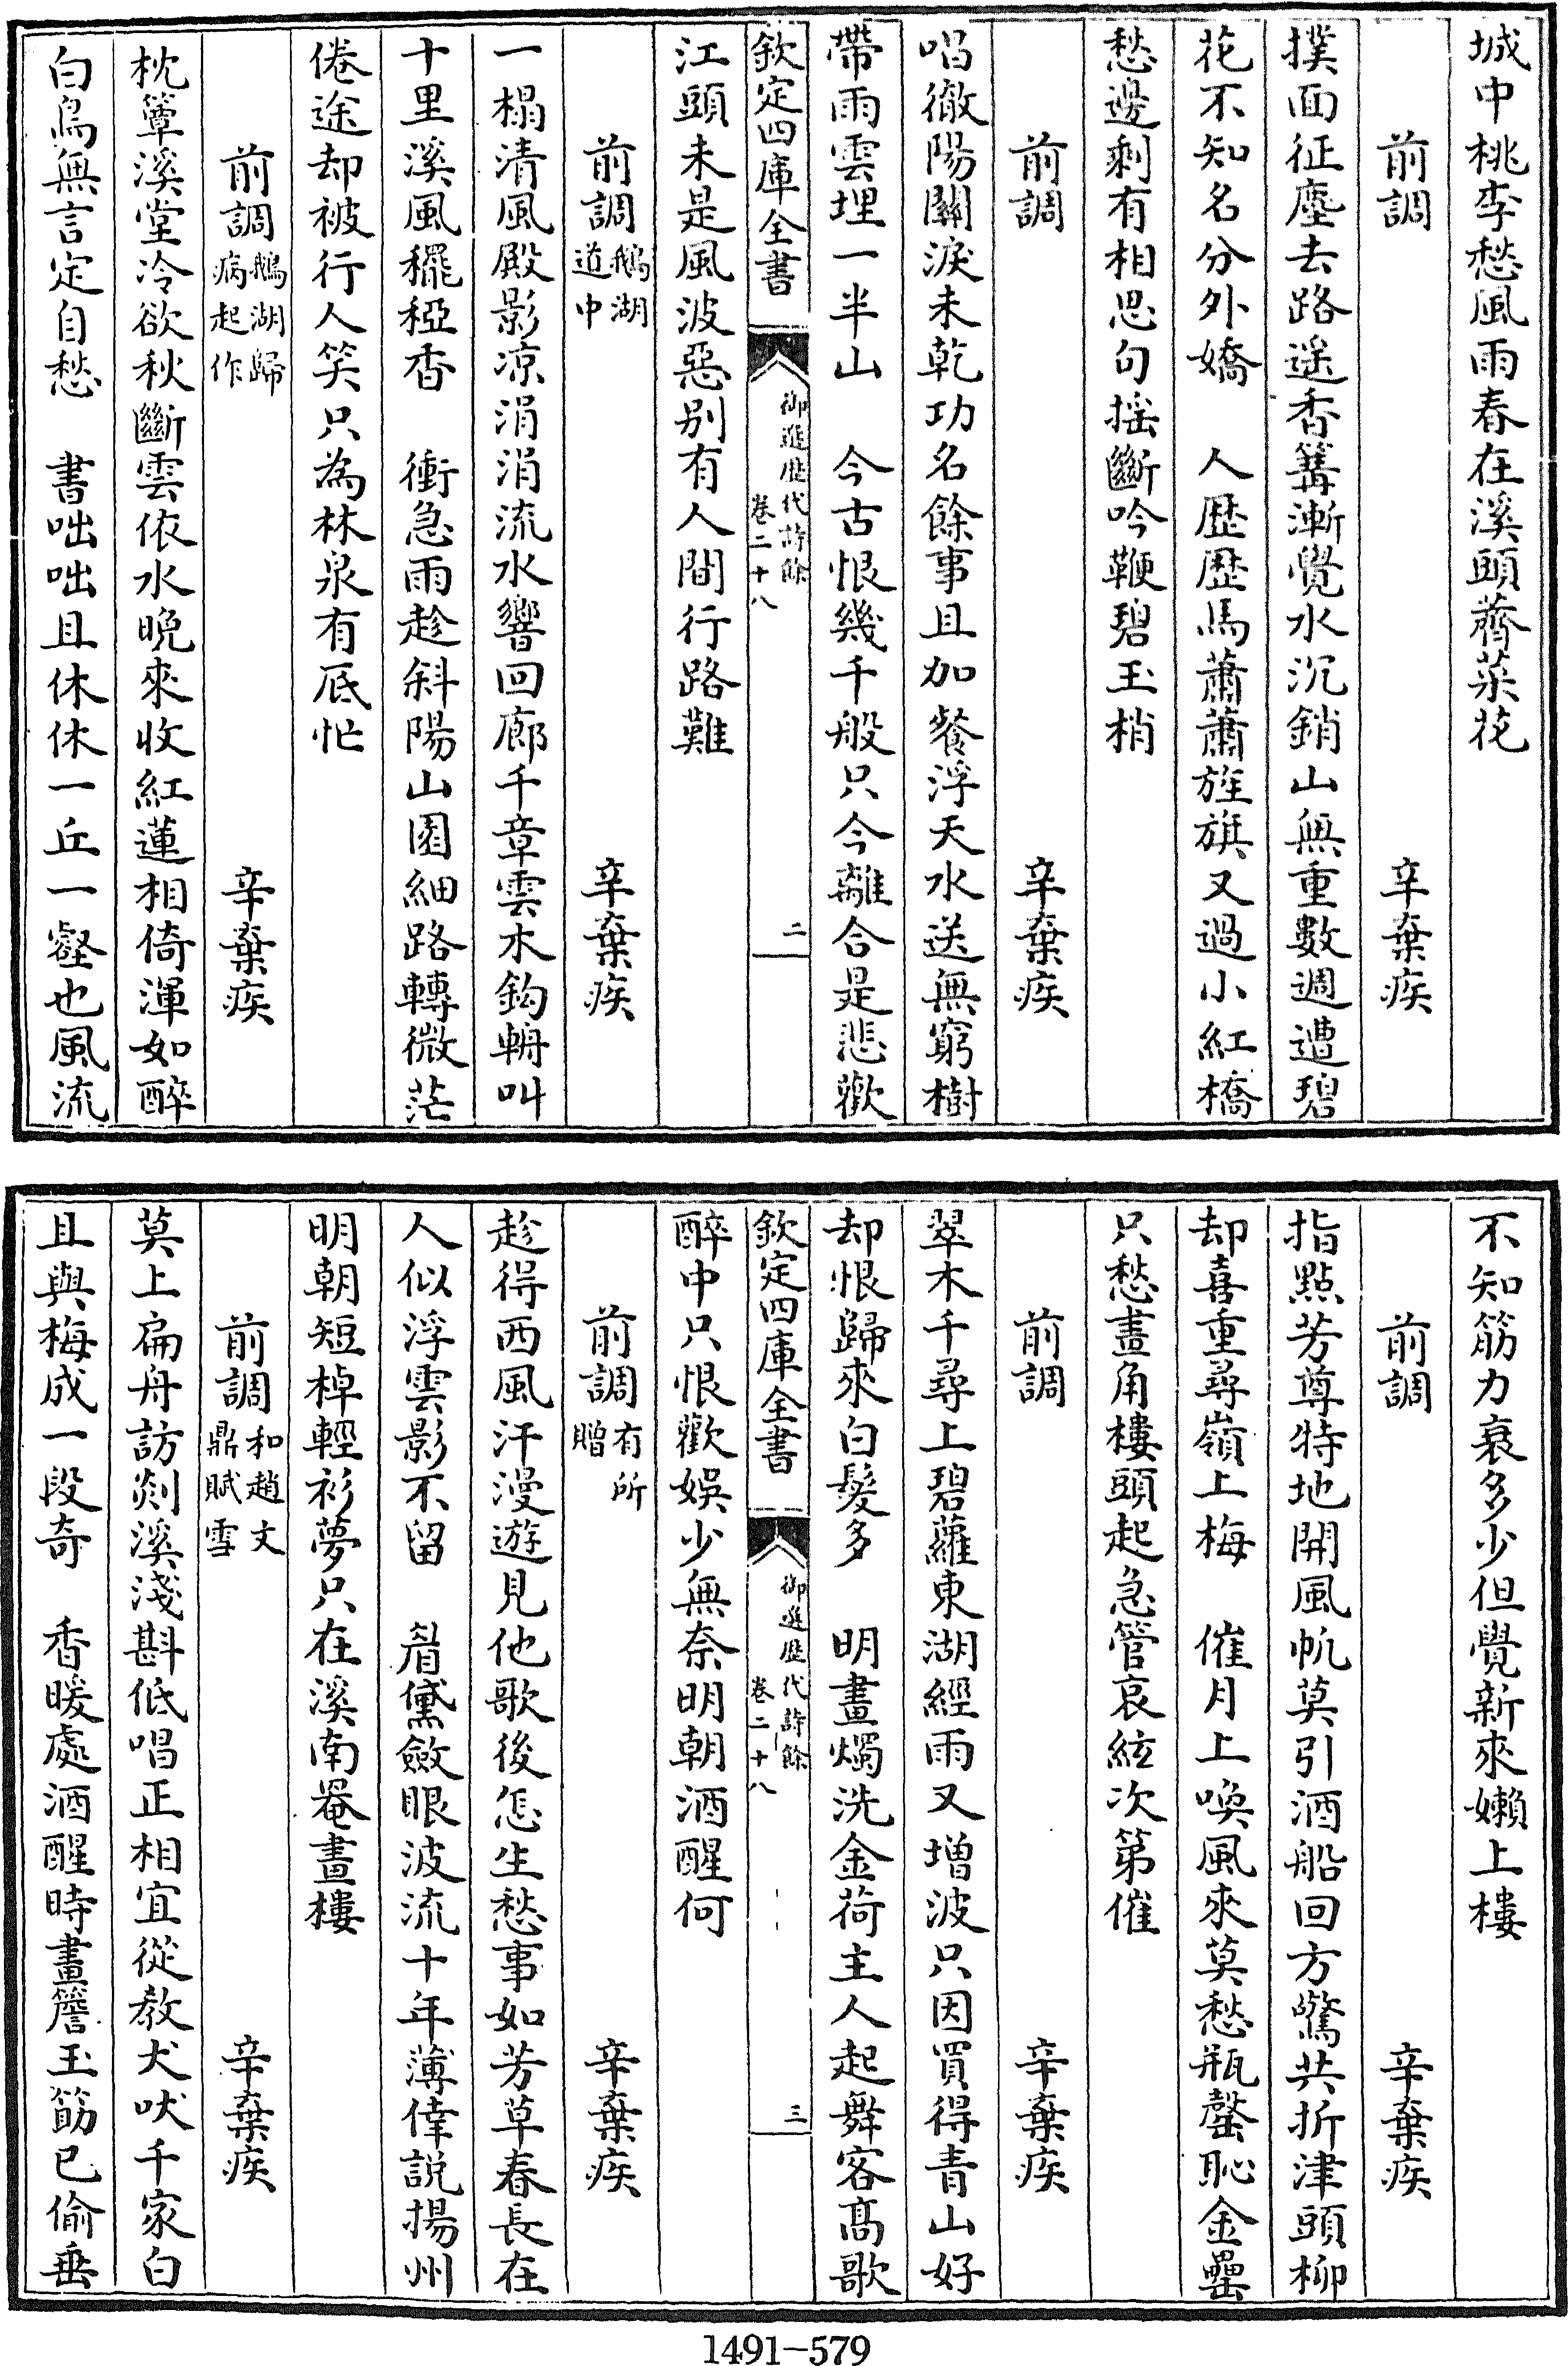 城中桃李愁風雨春在溪頭薺菜花
前調 辛棄疾
撲面征塵去路遥香篝漸覺水沉銷山無重數週遭碧
花不知名分外嬌 人歴歴馬蕭蕭旌旗又過小紅橋
愁邊剩有相思句揺斷吟鞭碧玉梢
前調 辛棄疾
唱徹陽關淚未乾功名餘事且加餐浮天水送無窮樹
帶雨雲埋一半山 今古恨幾千般只今離合是悲歡
欽定四庫全書 御選歴代詩餘 卷二十八 二
江頭未是風波惡别有人間行路難
前調 鵝湖道中 辛棄疾
一榻清風殿影凉涓涓流水響回廊千章雲木鈎輈叫
十里溪風䆉稏香 衝急雨趁斜陽山園細路轉微茫
倦途却被行人笑只為林泉有底忙
前調 鵝湖歸病起作 辛棄疾
枕簟溪堂冷欲秋斷雲依水晚來收紅蓮相倚渾如醉
白鳥無言定自愁 書咄咄且休休一丘一壑也風流
不知筋力衰多少但覺新來嬾上樓
前調 辛棄疾
指點芳尊特地開風帆莫引酒船回方驚共折津頭柳
却喜重尋嶺上梅 催月上喚風來莫愁瓶罄恥金罍
只愁畫角樓頭起急管哀絃次第催
前調 辛棄疾
翠木千尋上碧蘿東湖經雨又增波只因買得青山好
却恨歸來白髮多 明畫燭洗金荷主人起舞客髙歌
欽定四庫全書 御選歴代詩餘 卷二十八 三
醉中只恨歡娯少無奈明朝酒醒何
前調 有所贈 辛棄疾
趁得西風汗漫遊見他歌後怎生愁事如芳草春長在
人似浮雲影不留 眉黛斂眼波流十年薄倖説揚州
明朝短棹輕衫夢只在溪南罨畫樓
前調 和趙文鼎賦雪 辛棄疾
莫上扁舟訪剡溪淺斟低唱正相宜從教犬吠千家白
且與梅成一段奇 香暖處酒醒時畫簷玉筯已偷垂
1491-579